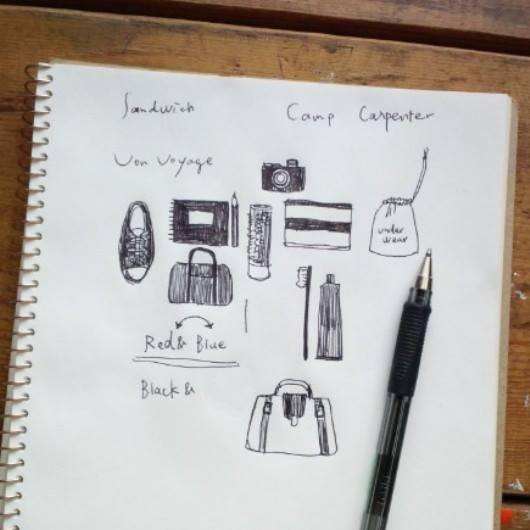 Sandwich
Camp Carpenter
Von Voyage
under
wear
Red & Blue
Black &